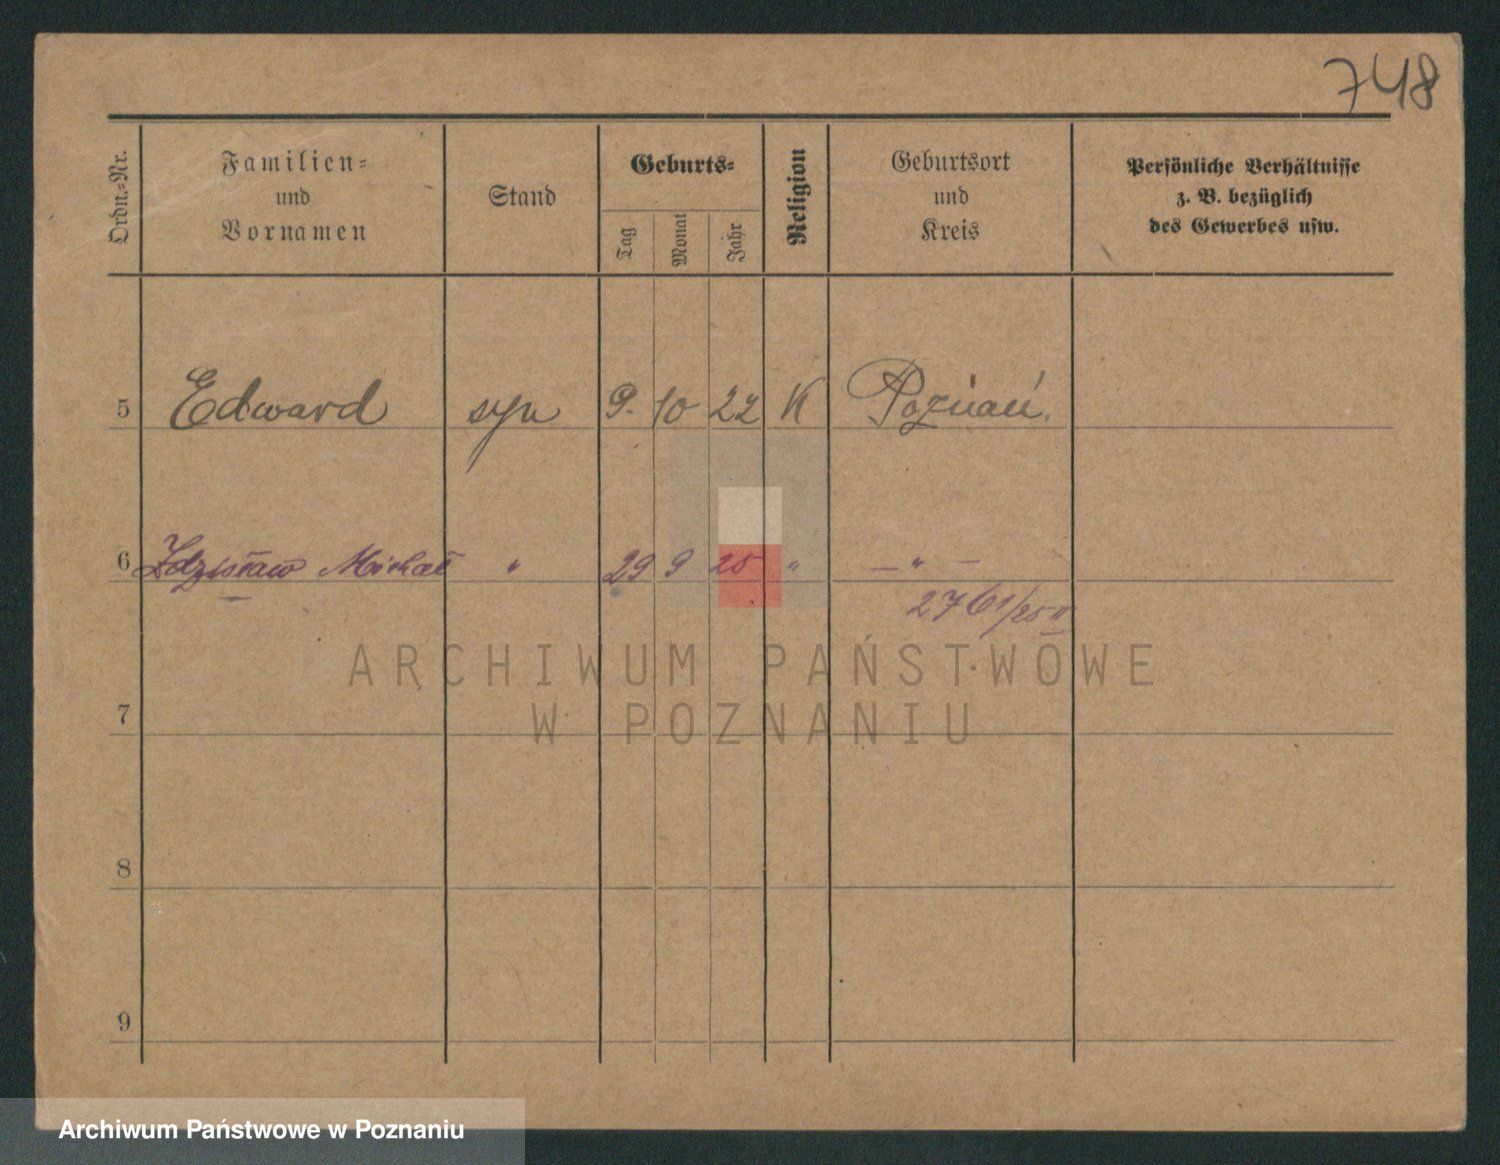 748
Ordn.-Nr.
Familien-
und
Vornamen
Stand
Geburts-
Tag
Monat
Jahr
Religion
Geburtsort
und
Kreis
Persönliche Verhältnisse
z. B. bezüglich
des Gewerbes usw.
5 Edward syn 9. 10 22 K Poznań.
6 Zdzisław Michał " 29 9 25 " — " —
2761/25 II
ARCHIWUM PAŃSTWOWE
W POZNANIU
7
8
9
Archiwum Państwowe w Poznaniu